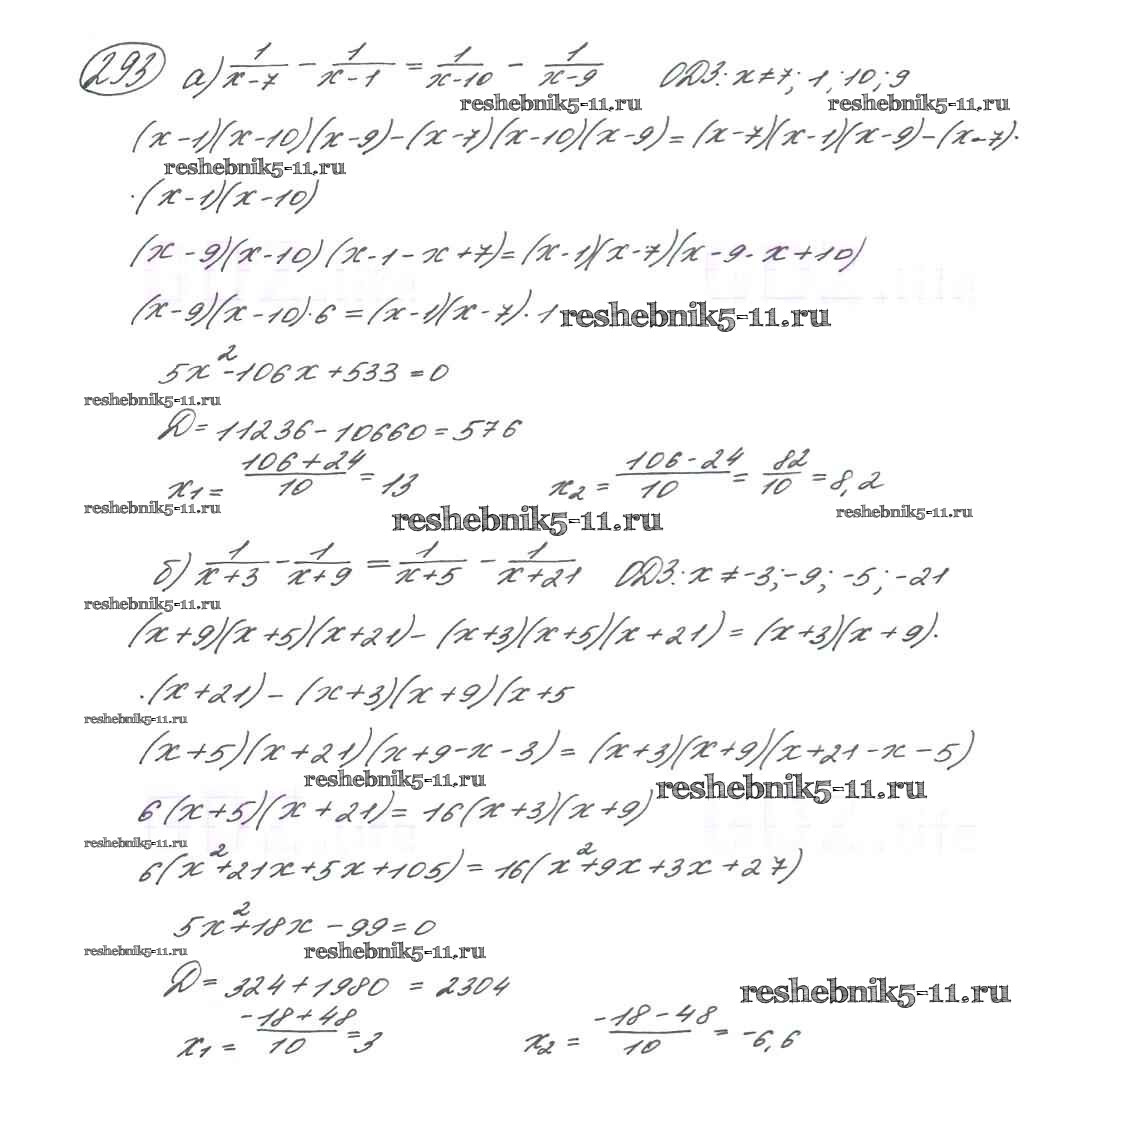 293 а) 1/(x-7) - 1/(x-1) = 1/(x-10) - 1/(x-9) ОДЗ: x≠7; 1; 10; 9
reshebnik5-11.ru reshebnik5-11.ru
(x-1)(x-10)(x-9)-(x-7)(x-10)(x-9)=(x-7)(x-1)(x-9)-(x-7)·
reshebnik5-11.ru
·(x-1)(x-10)
(x-9)(x-10)(x-1-x+7)=(x-1)(x-7)(x-9-x+10)
(x-9)(x-10)·6=(x-1)(x-7)·1 reshebnik5-11.ru
5x²-106x+533=0
reshebnik5-11.ru
Д=11236-10660=576
x₁=(106+24)/10=13 x₂=(106-24)/10=82/10=8,2
reshebnik5-11.ru reshebnik5-11.ru reshebnik5-11.ru
б) 1/(x+3) - 1/(x+9) = 1/(x+5) - 1/(x+21) ОДЗ: x≠-3;-9;-5;-21
reshebnik5-11.ru
(x+9)(x+5)(x+21)-(x+3)(x+5)(x+21)=(x+3)(x+9)·
·(x+21)-(x+3)(x+9)(x+5
reshebnik5-11.ru
(x+5)(x+21)(x+9-x-3)=(x+3)(x+9)(x+21-x-5)
reshebnik5-11.ru reshebnik5-11.ru
6(x+5)(x+21)=16(x+3)(x+9)
reshebnik5-11.ru
6(x²+21x+5x+105)=16(x²+9x+3x+27)
5x²+18x-99=0
reshebnik5-11.ru reshebnik5-11.ru
Д=324+1980=2304
reshebnik5-11.ru
x₁=(-18+48)/10=3 x₂=(-18-48)/10=-6,6